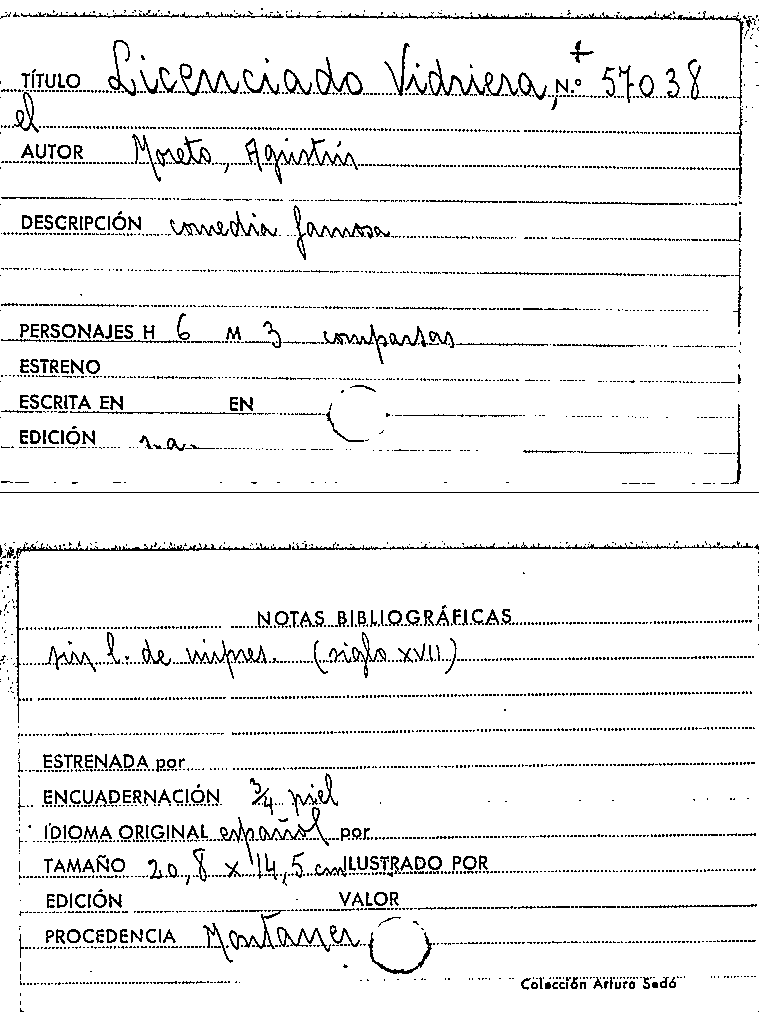 TÍTULO Licenciado Vidriera, N.º + 57038
el
AUTOR Moreto, Agustín
DESCRIPCIÓN comedia famosa
PERSONAJES H 6 M 3 comparsas
ESTRENO
ESCRITA EN EN
EDICIÓN s.a.
NOTAS BIBLIOGRÁFICAS
sin l. de impres. (siglo XVII)
ESTRENADA por
ENCUADERNACIÓN 3/4 piel
IDIOMA ORIGINAL español por
TAMAÑO 20,8 x 14,5 cm ILUSTRADO POR
EDICIÓN VALOR
PROCEDENCIA Montaner
Colección Arturo Sedó